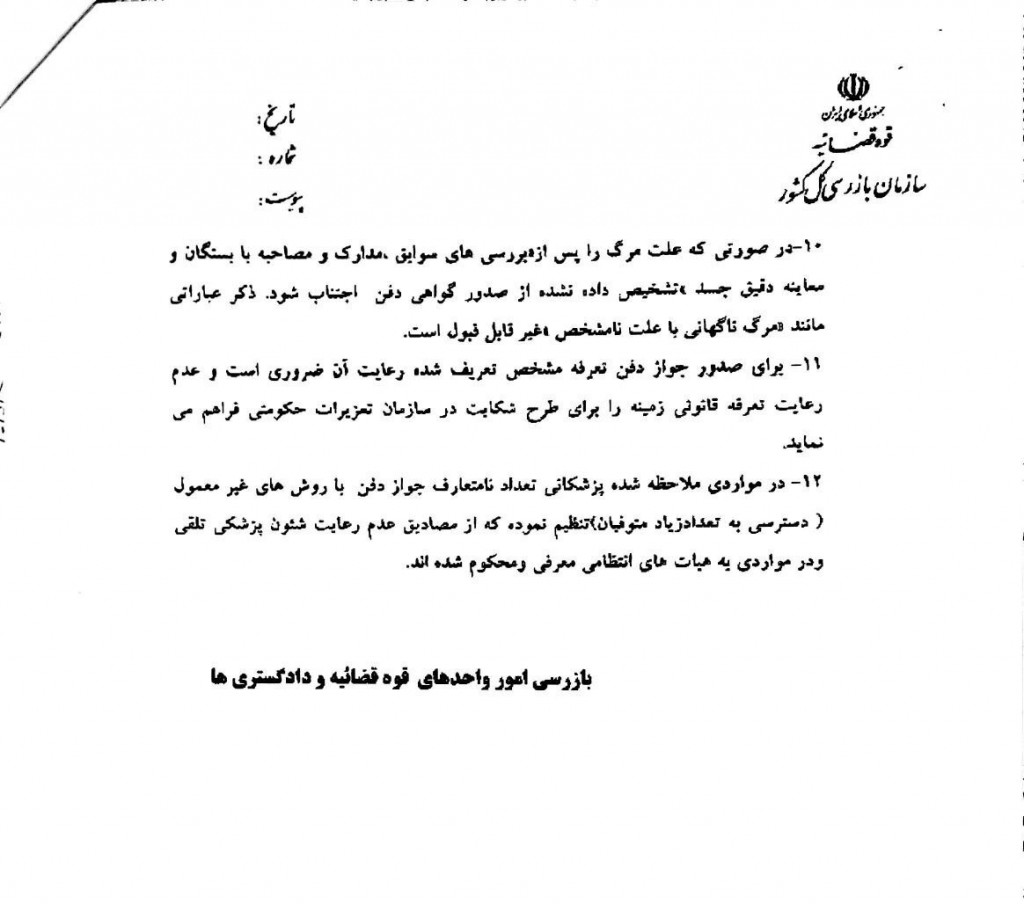 جمهوری اسلامی ایران
قوه قضائیه
سازمان بازرسی کل کشور
تاریخ:
شماره:
پیوست:
۱۰-در صورتی که علت مرگ را پس از»بررسی های سوابق ،مدارک و مصاحبه با بستگان و
معاینه دقیق جسد »تشخیص داده نشده از صدور گواهی دفن اجتناب شود. ذکر عباراتی
مانند «مرگ ناگهانی با علت نامشخص »غیر قابل قبول است.
۱۱- برای صدور جواز دفن تعرفه مشخص تعریف شده رعایت آن ضروری است و عدم
رعایت تعرفه قانونی زمینه را برای طرح شکایت در سازمان تعزیرات حکومتی فراهم می
نماید.
۱۲- در مواردی ملاحظه شده پزشکانی تعداد نامتعارف جواز دفن با روش های غیر معمول
( دسترسی به تعدادزیاد متوفیان)تنظیم نموده که از مصادیق عدم رعایت شئون پزشکی تلقی
ودر مواردی به هیات های انتظامی معرفی ومحکوم شده اند.
بازرسی امور واحدهای قوه قضائیه و دادگستری ها